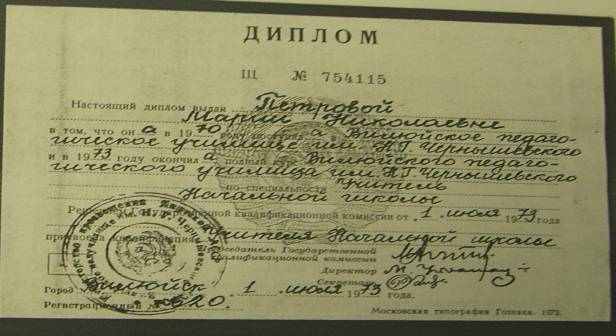 ДИПЛОМ
Щ № 754115
Настоящий диплом выдан Петровой
Марии Николаевне
в том, что он а в 19 70 году поступил а в Вилюйское педаго-
гическое училище им. Н.Г. Чернышевского
и в 19 73 году окончил а полный курс Вилюйского педаго-
гического училища им. Н.Г. Чернышевского
по специальности учитель
начальной школы
квалификационной комиссии от 1 июля 19 73
присвоена квалификация учителя начальной школы
Председатель Государственной
квалификационной комиссии
Директор
Секретарь
Город Вилюйск 1 июля 19 73 года.
Регистрационный № 620.
Московская типография Гознака. 1972.